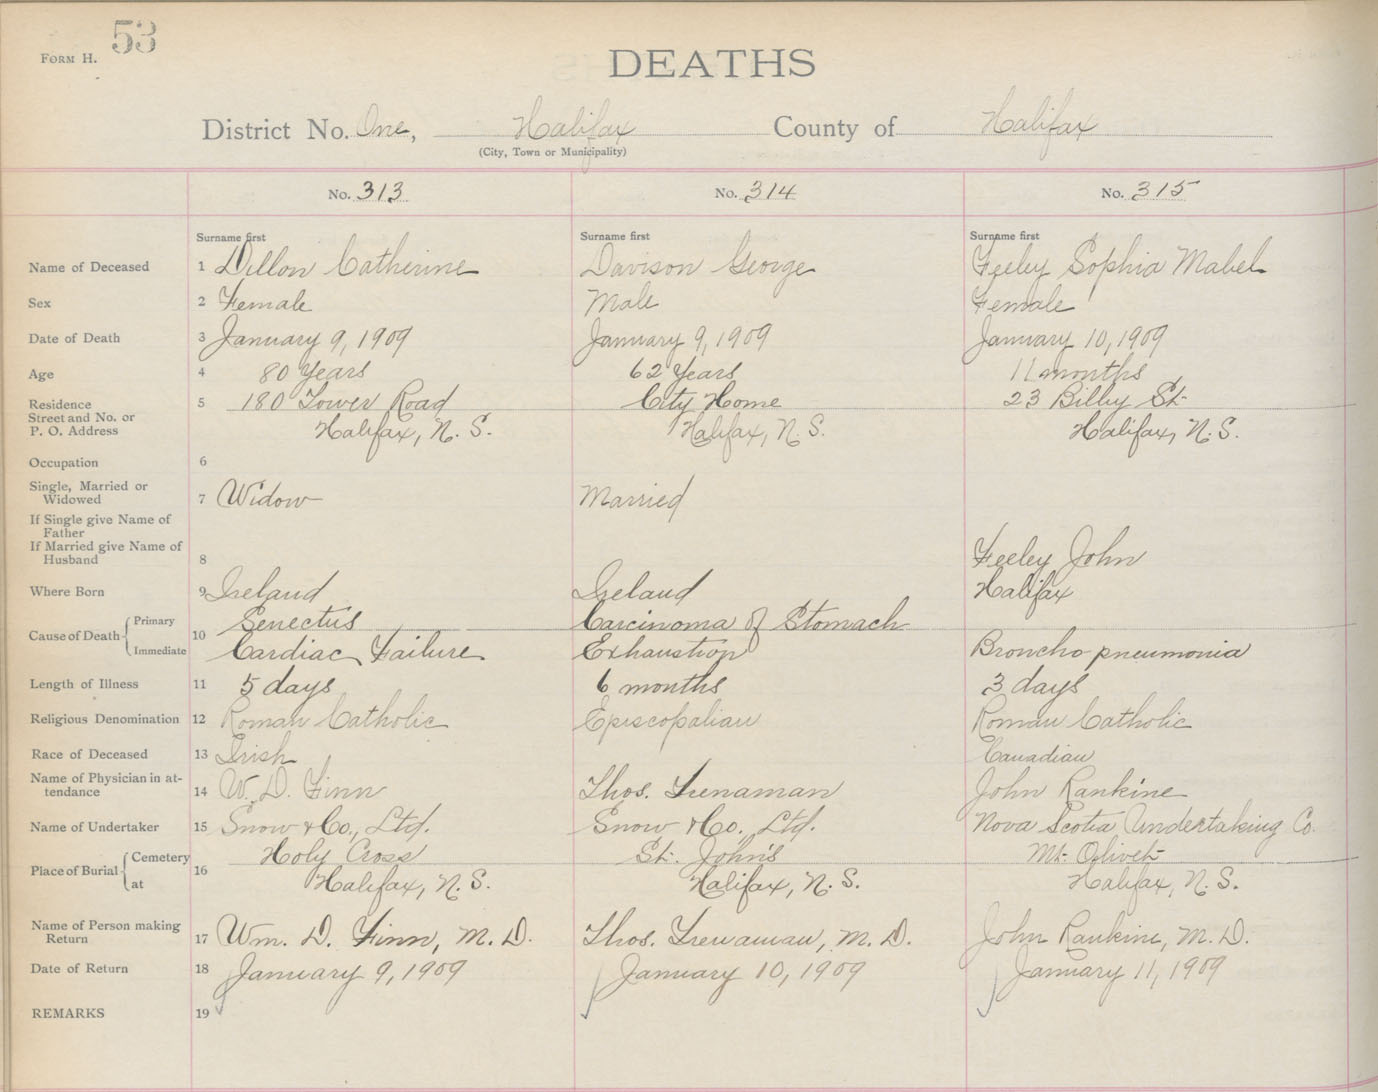 53
FORM H.
DEATHS
District No. One, Halifax County of Halifax
(City, Town or Municipality)
No. 313 No. 314 No. 315
Surname first Surname first Surname first
Name of Deceased 1 Dillon Catherine Davison George Feeley Sophia Mabel
Sex 2 Female Male Female
Date of Death 3 January 9, 1909 January 9, 1909 January 10, 1909
Age 4 80 Years 62 Years 11 months
Residence 5 180 Tower Road City Home 23 Bilby St.
Street and No. or
P. O. Address Halifax, N. S. Halifax, N. S. Halifax, N. S.
Occupation 6
Single, Married or
Widowed 7 Widow Married
If Single give Name of
Father
If Married give Name of
Husband 8 Feeley John
Where Born 9 Ireland Ireland Halifax
Primary Senectus Carcinoma of Stomach
Cause of Death 10
Immediate Cardiac Failure Exhaustion Broncho pneumonia
Length of Illness 11 5 days 6 months 3 days
Religious Denomination 12 Roman Catholic Episcopalian Roman Catholic
Race of Deceased 13 Irish Canadian
Name of Physician in at-
tendance 14 W. D. Finn Thos. Trenaman John Rankine
Name of Undertaker 15 Snow & Co., Ltd. Snow & Co., Ltd. Nova Scotia Undertaking Co.
Cemetery Holy Cross St. John's Mt. Olivet
Place of Burial 16
at Halifax, N. S. Halifax, N. S. Halifax, N. S.
Name of Person making
Return 17 Wm. D. Finn, M. D. Thos. Trenaman, M. D. John Rankine, M. D.
Date of Return 18 January 9, 1909 January 10, 1909 January 11, 1909
REMARKS 19